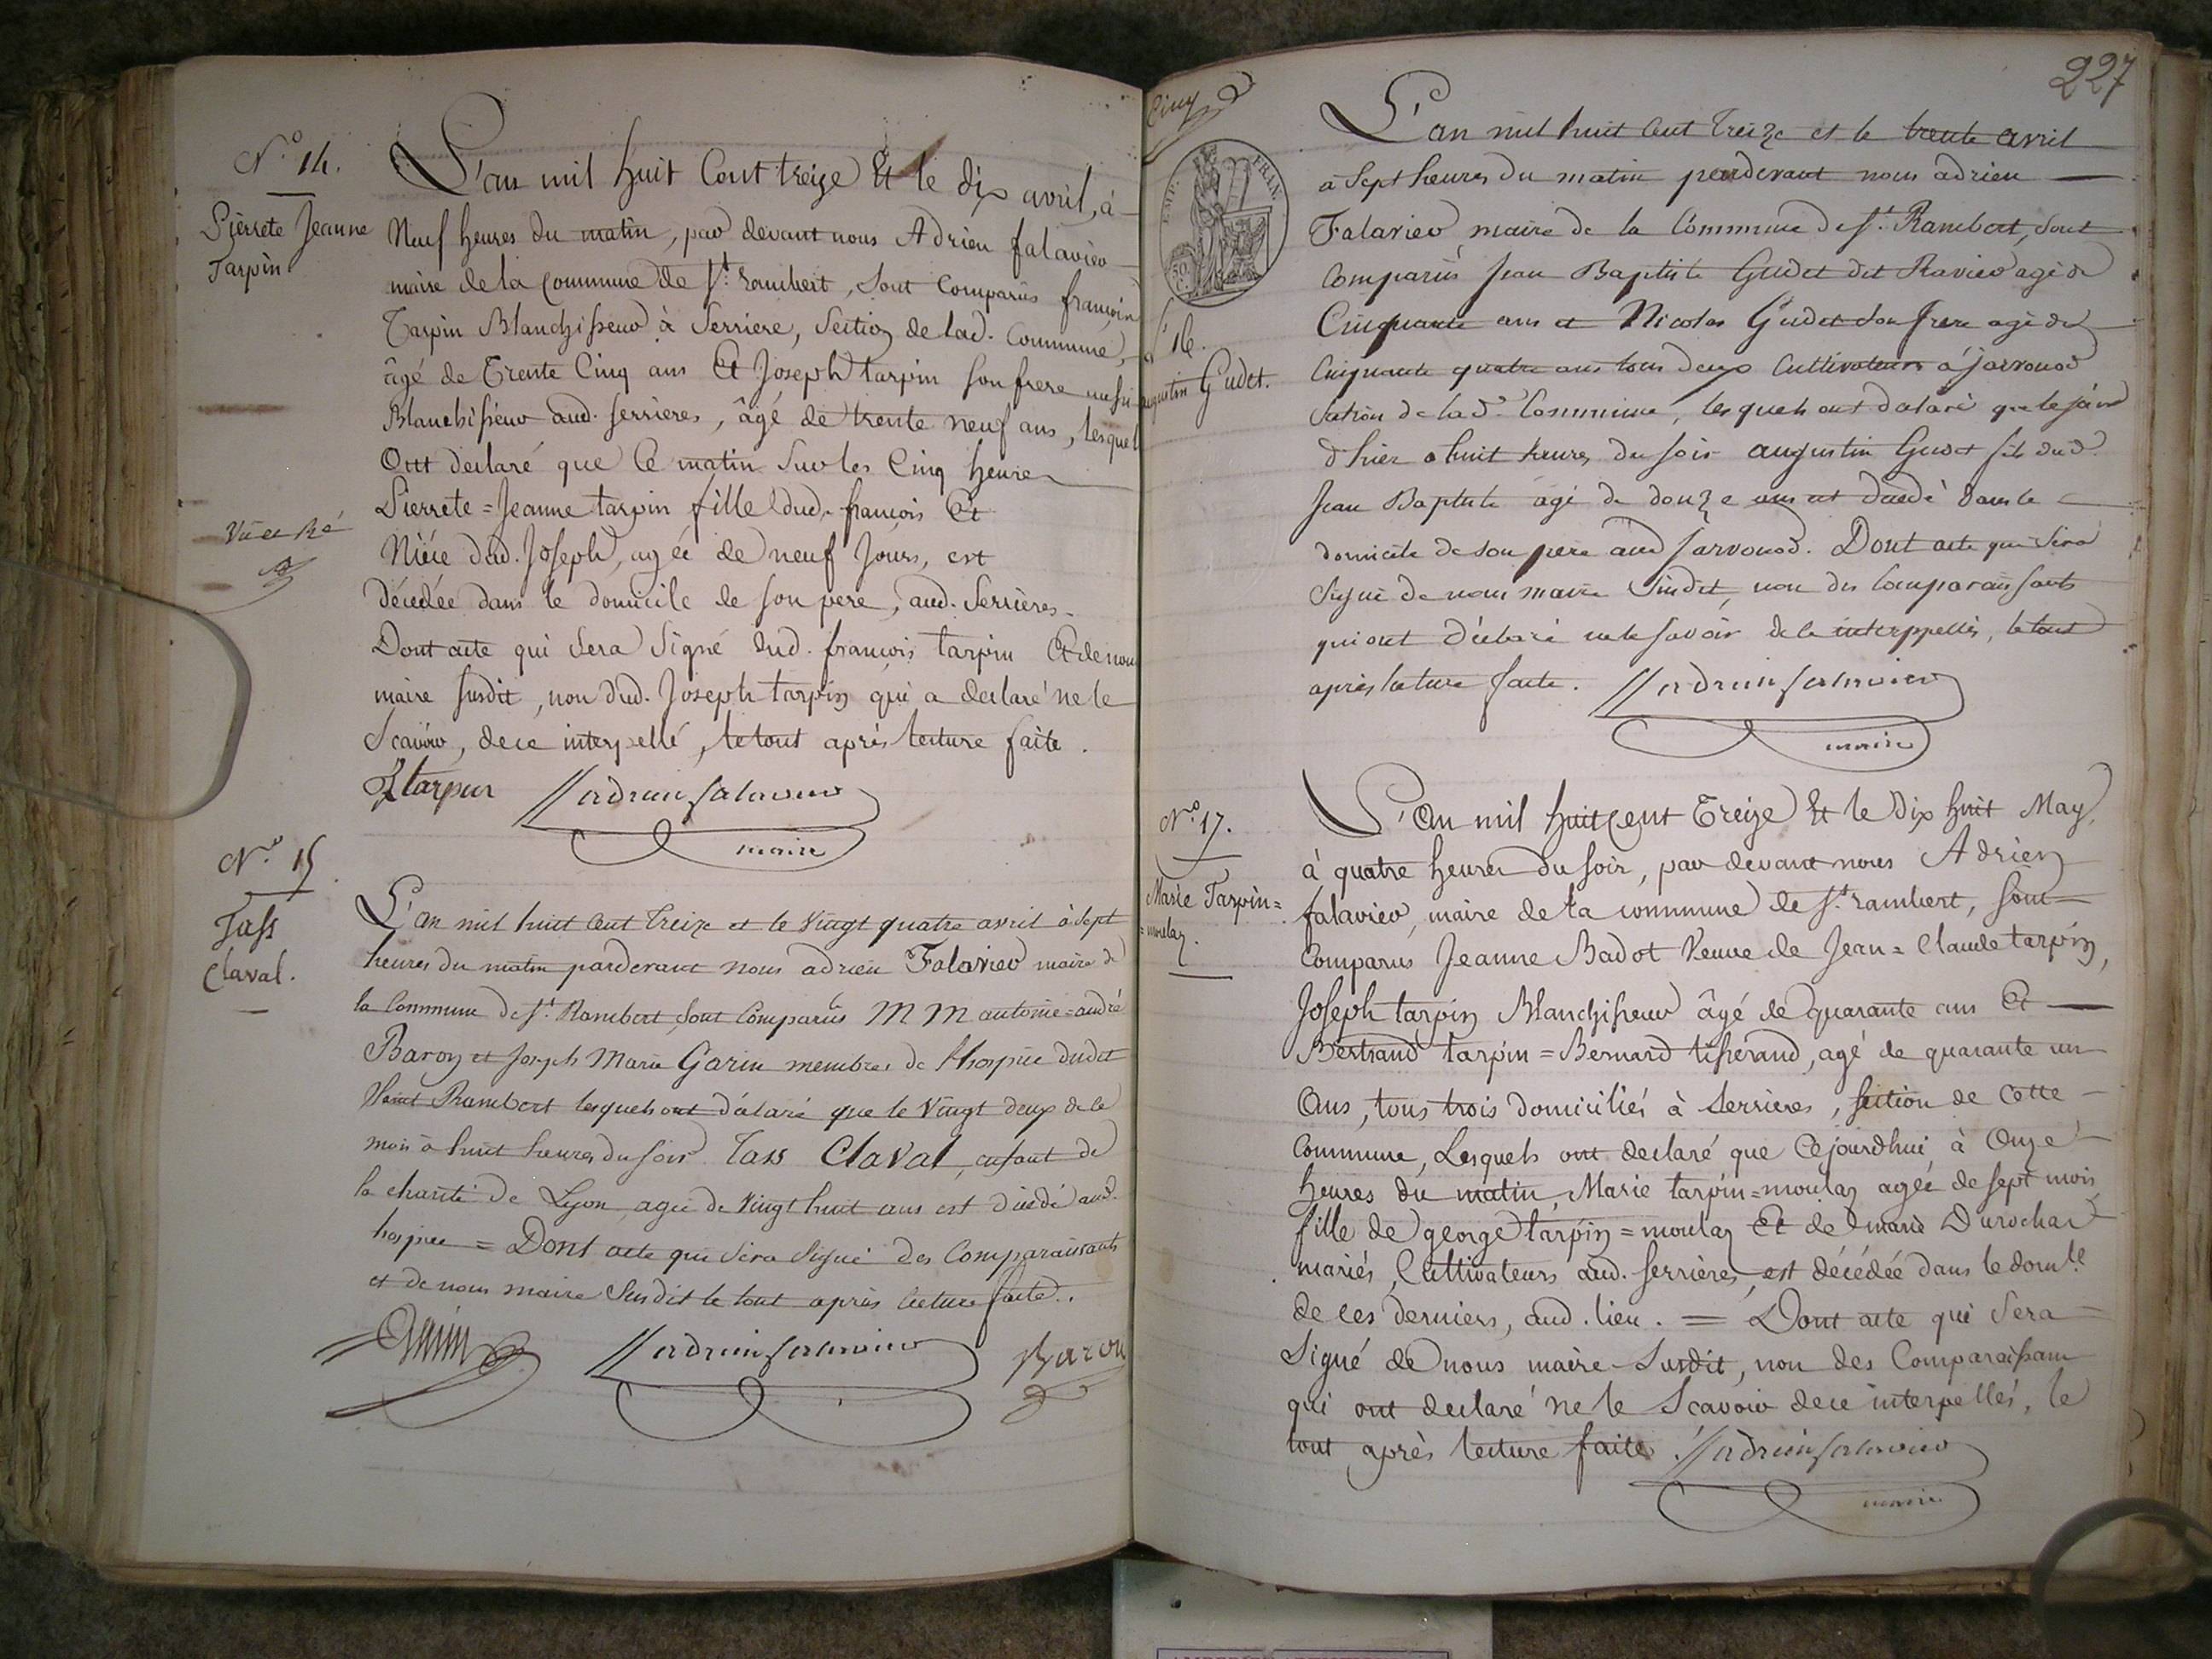 N.o 14.
Pierrete Jeanne
Tarpin
L'an mil huit Cent treize Et le dix avril, à
Neuf heures du matin, par devant nous Adrien falavier
maire de la Commune de St. rambert, Sont Comparûs françois
Tarpin Blanchisseur à Serriere, Section de lad. Commune,
âgé de Trente Cinq ans Et Joseph tarpin son frere aussi
Blanchisseur aud. serrieres, âgé de trente neuf ans, lesquels
Ont declaré que Ce matin Sur les Cinq heures
Pierrete = Jeanne tarpin fille dud. françois Et
Niéce dud. Joseph, agée de neuf Jours, est
Vu et
décédée dans le domicile de son pere, aud. Serrières.
Dont acte qui Sera Signé dud. françois tarpin Et de nous
maire susdit, non dud. Joseph tarpin qui a declaré ne le
Scavoir, de ce interpellé, le tout après lecture faite.
f tarpin adrien falavier
maire
N.o 15
Tass
Claval.
L'an mil huit cent treize et le vingt quatre avril à sept
heures du matin pardevant nous adrien Falavier maire de
la Commune de St. Rambert, sont Comparûs MM antoine=andré
Baron et Joseph Marie Garin membres de l'hospice dudit
Saint Rambert lesquels ont déclaré que le Vingt deux de ce
mois à huit heures du soir Tass Claval, enfant de
la charité de Lyon agée de vingt huit ans est décédé aud.
hospice = Dont acte qui sera signé des Comparaissants
et de nous maire Susdit le tout après lecture faite.
Garin adrien falavier Baron
227
Cinq
EMP. FRAN.
50 C.
L'an mil huit cent treize et le trente avril
a sept heures du matin pardevant nous adrien
Falavier maire de la Commune de St. Rambert, sont
comparûs Jean Baptiste Gudet dit Ravier agé de
Cinquante ans et Nicolas Gudet son frere agé de
N° 16.
augustin Gudet.
Cinquante quatre ans tous deux Cultivateurs à Javornod
Section de lad. Commune, lesquels ont déclaré que le jour
d'hier a huit heures du soir augustin Gudet fils dud.
Jean Baptiste agé de douze ans est décédé dans le
domicile de son pere aud Javornod. Dont acte qui sera
signé de nous maire Susdit, non des Comparaissants
qui ont déclaré ne le savoir de ce interppellés, le tout
après lecture faite. adrien falavier
maire
N.o 17.
Marie Tarpin=
=moulaz.
L'an mil huit cent Treize Et le dix huit May,
à quatre heures du soir, par devant nous Adrien
falavier, maire de la commune de St. rambert, sont
Comparus Jeanne Badot Veuve de Jean = Claude tarpin,
Joseph tarpin Blanchisseur âgé de quarante ans Et
Bertrand tarpin = Bernard tisserand, agé de quarante un
Ans, tous trois domiciliés à Serrières, section de Cette
Commune, Lesquels ont declaré que Cejourdhui à Onze
heures du matin, Marie tarpin=moulaz agée de sept mois
fille de george tarpin = moulaz Et de marie Durochat
mariés, Cultivateurs aud. serrières, est décédée dans le domle
de ces derniers, aud. lieu. = Dont acte qui Sera
Signé de nous maire Susdit, non des Comparaissans
qui ont declaré ne le Scavoir de ce interpellés, le
tout après lecture faite. adrien falavier
maire